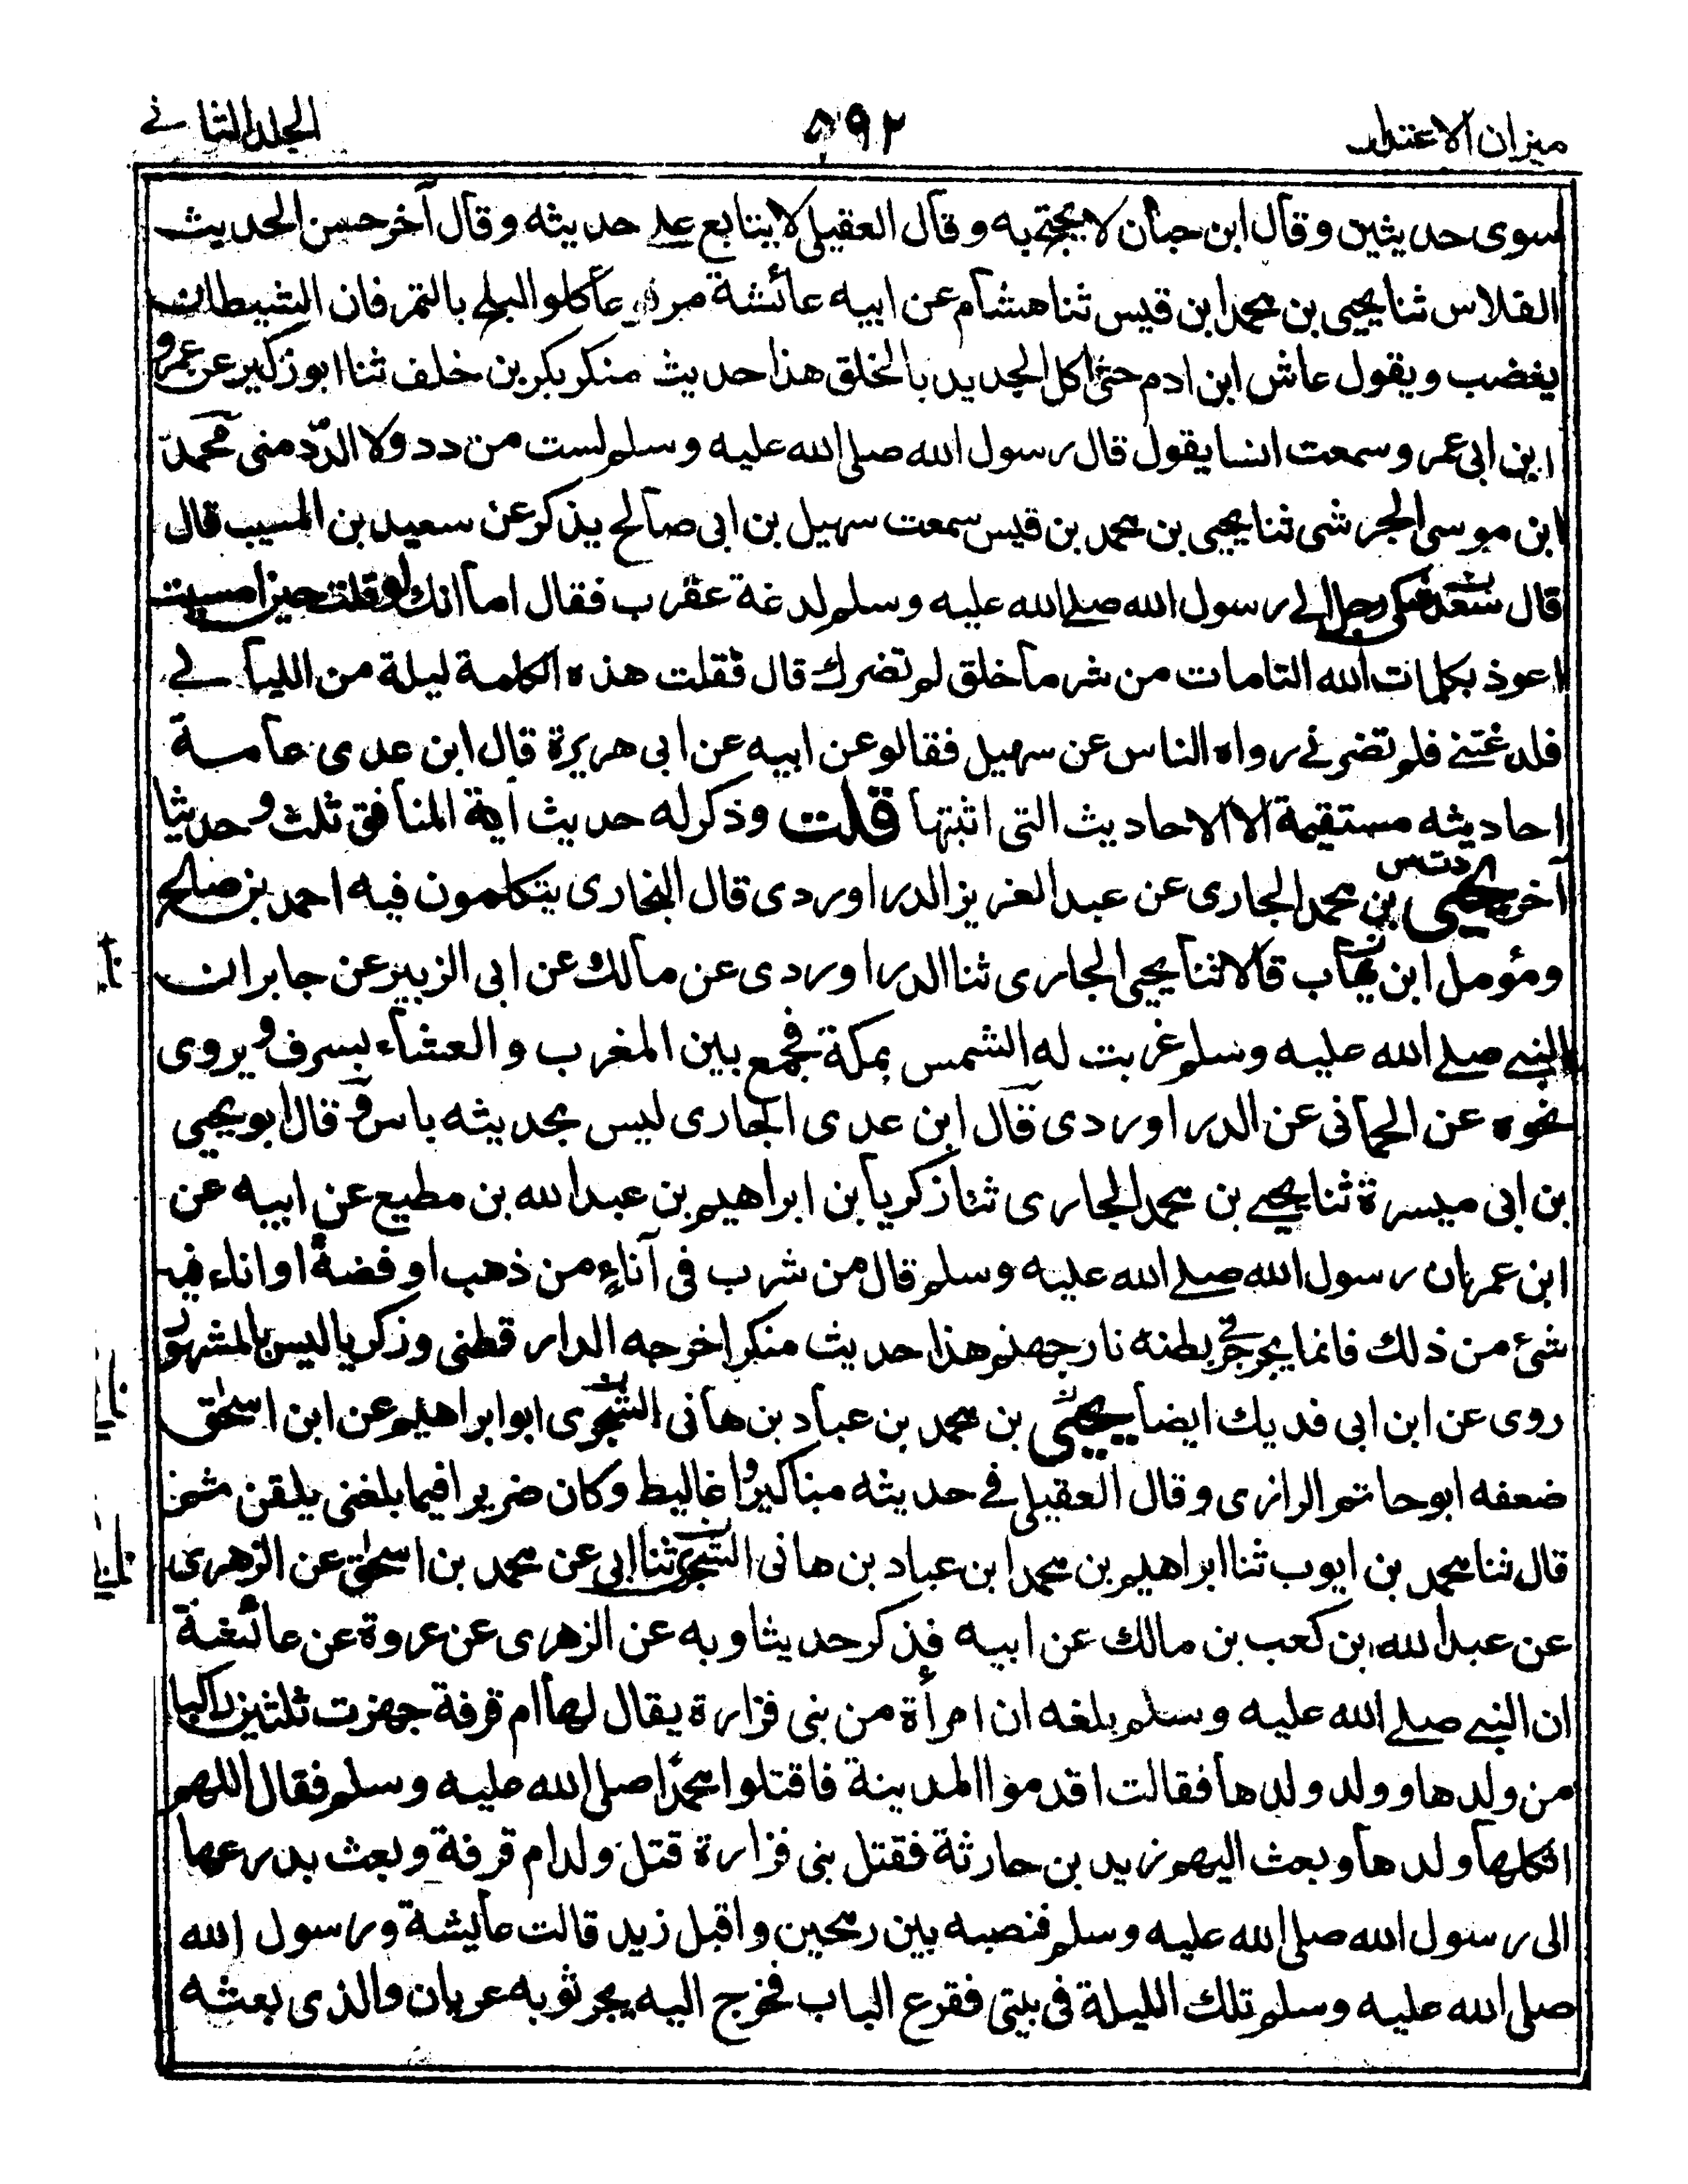 ميزان الاعتدال
٥٩٢
الجلد الثاني
سوى حديثين وقال ابن حبان لا يحتج به وقال العقيلي لا يتابع على حديثه وقال آخر حسن الحديث
الفلاس ثنا يحيى بن محمد ابن قيس ثنا هشام عن ابيه عائشة مرفوعا كلوا البلح بالتمر فان الشيطان
يغضب ويقول عاش ابن ادم حتى اكل الجديد بالخلق هذا حديث منكر بكر بن خلف ثنا ابو زكير عن عمرو
ابن ابي عمر وسمعت انسا يقول قال رسول الله صلى الله عليه وسلم لست من دد ولا الدد مني محمد
ابن موسى الجرشي ثنا يحيى بن محمد بن قيس سمعت سهيل بن ابي صالح يذكر عن سعيد بن المسيب قال
قال سعد شكى رجل الى رسول الله صلى الله عليه وسلم لدغة عقرب فقال اما انك لو قلت حين امسيت
اعوذ بكلمات الله التامات من شر ما خلق لم تضرك قال فقلت هذه الكلمة ليلة من الليالي
فلدغتني فلم تضرني رواه الناس عن سهيل فقالو عن ابيه عن ابي هريرة قال ابن عدى عامة
احاديثه مستقيمة الا الاحاديث التي اثبتها قلت وذكر له حديث آية المنافق ثلث وحديثا
آخر يحيى دت س بن محمد الجارى عن عبد العزيز الدراوردى قال البخارى يتكلمون فيه احمد بن صالح
ومؤمل ابن يهاب قالا ثنا يحيى الجارى ثنا الدراوردى عن مالك عن ابي الزبير عن جابر ان
النبي صلى الله عليه وسلم غربت له الشمس بمكة فجمع بين المغرب والعشاء بسرف ويروى
نحوه عن الحماني عن الدراوردى قال ابن عدى الجارى ليس بحديثه باس وقال ابو يحيى
بن ابي ميسرة ثنا يحيى بن محمد الجارى ثنا زكريا بن ابراهيم بن عبد الله بن مطيع عن ابيه عن
ابن عمر ان رسول الله صلى الله عليه وسلم قال من شرب في آناء من ذهب او فضة او اناء فيه
شئ من ذلك فانما يجرجر في بطنه نار جهنم هذا حديث منكر اخرجه الدارقطني وزكريا ليس بالمشهور
روى عن ابن ابي فديك ايضا يحيى بن محمد بن عباد بن هاني الشجرى ابو ابراهيم عن ابن اسحق
ضعفه ابو حاتم الرازى وقال العقيلي في حديثه مناكير واغاليط وكان ضريرا فيما بلغني يلقن ثم
قال ثنا محمد بن ايوب ثنا ابراهيم بن محمد ابن عباد بن هاني الشجرى ثنا ابي عن محمد بن اسحق عن الزهرى
عن عبد الله بن كعب بن مالك عن ابيه فذكر حديثا وبه عن الزهرى عن عروة عن عائشة
ان النبي صلى الله عليه وسلم بلغه ان امرأة من بني فزارة يقال لها ام قرفة جهزت ثلثين راكبا
من ولدها وولد ولدها فقالت اقدموا المدينة فاقتلوا محمدا صلى الله عليه وسلم فقال اللهم
اثكلها ولدها وبعث اليهم زيد بن حارثة فقتل بني فزارة قتل ولد ام قرفة وبعث بدرعها
الى رسول الله صلى الله عليه وسلم فنصبه بين رمحين واقبل زيد قالت عايشة ورسول الله
صلى الله عليه وسلم تلك الليلة في بيتي فقرع الباب فخرج اليه يجر ثوبه عريان والذى بعثه